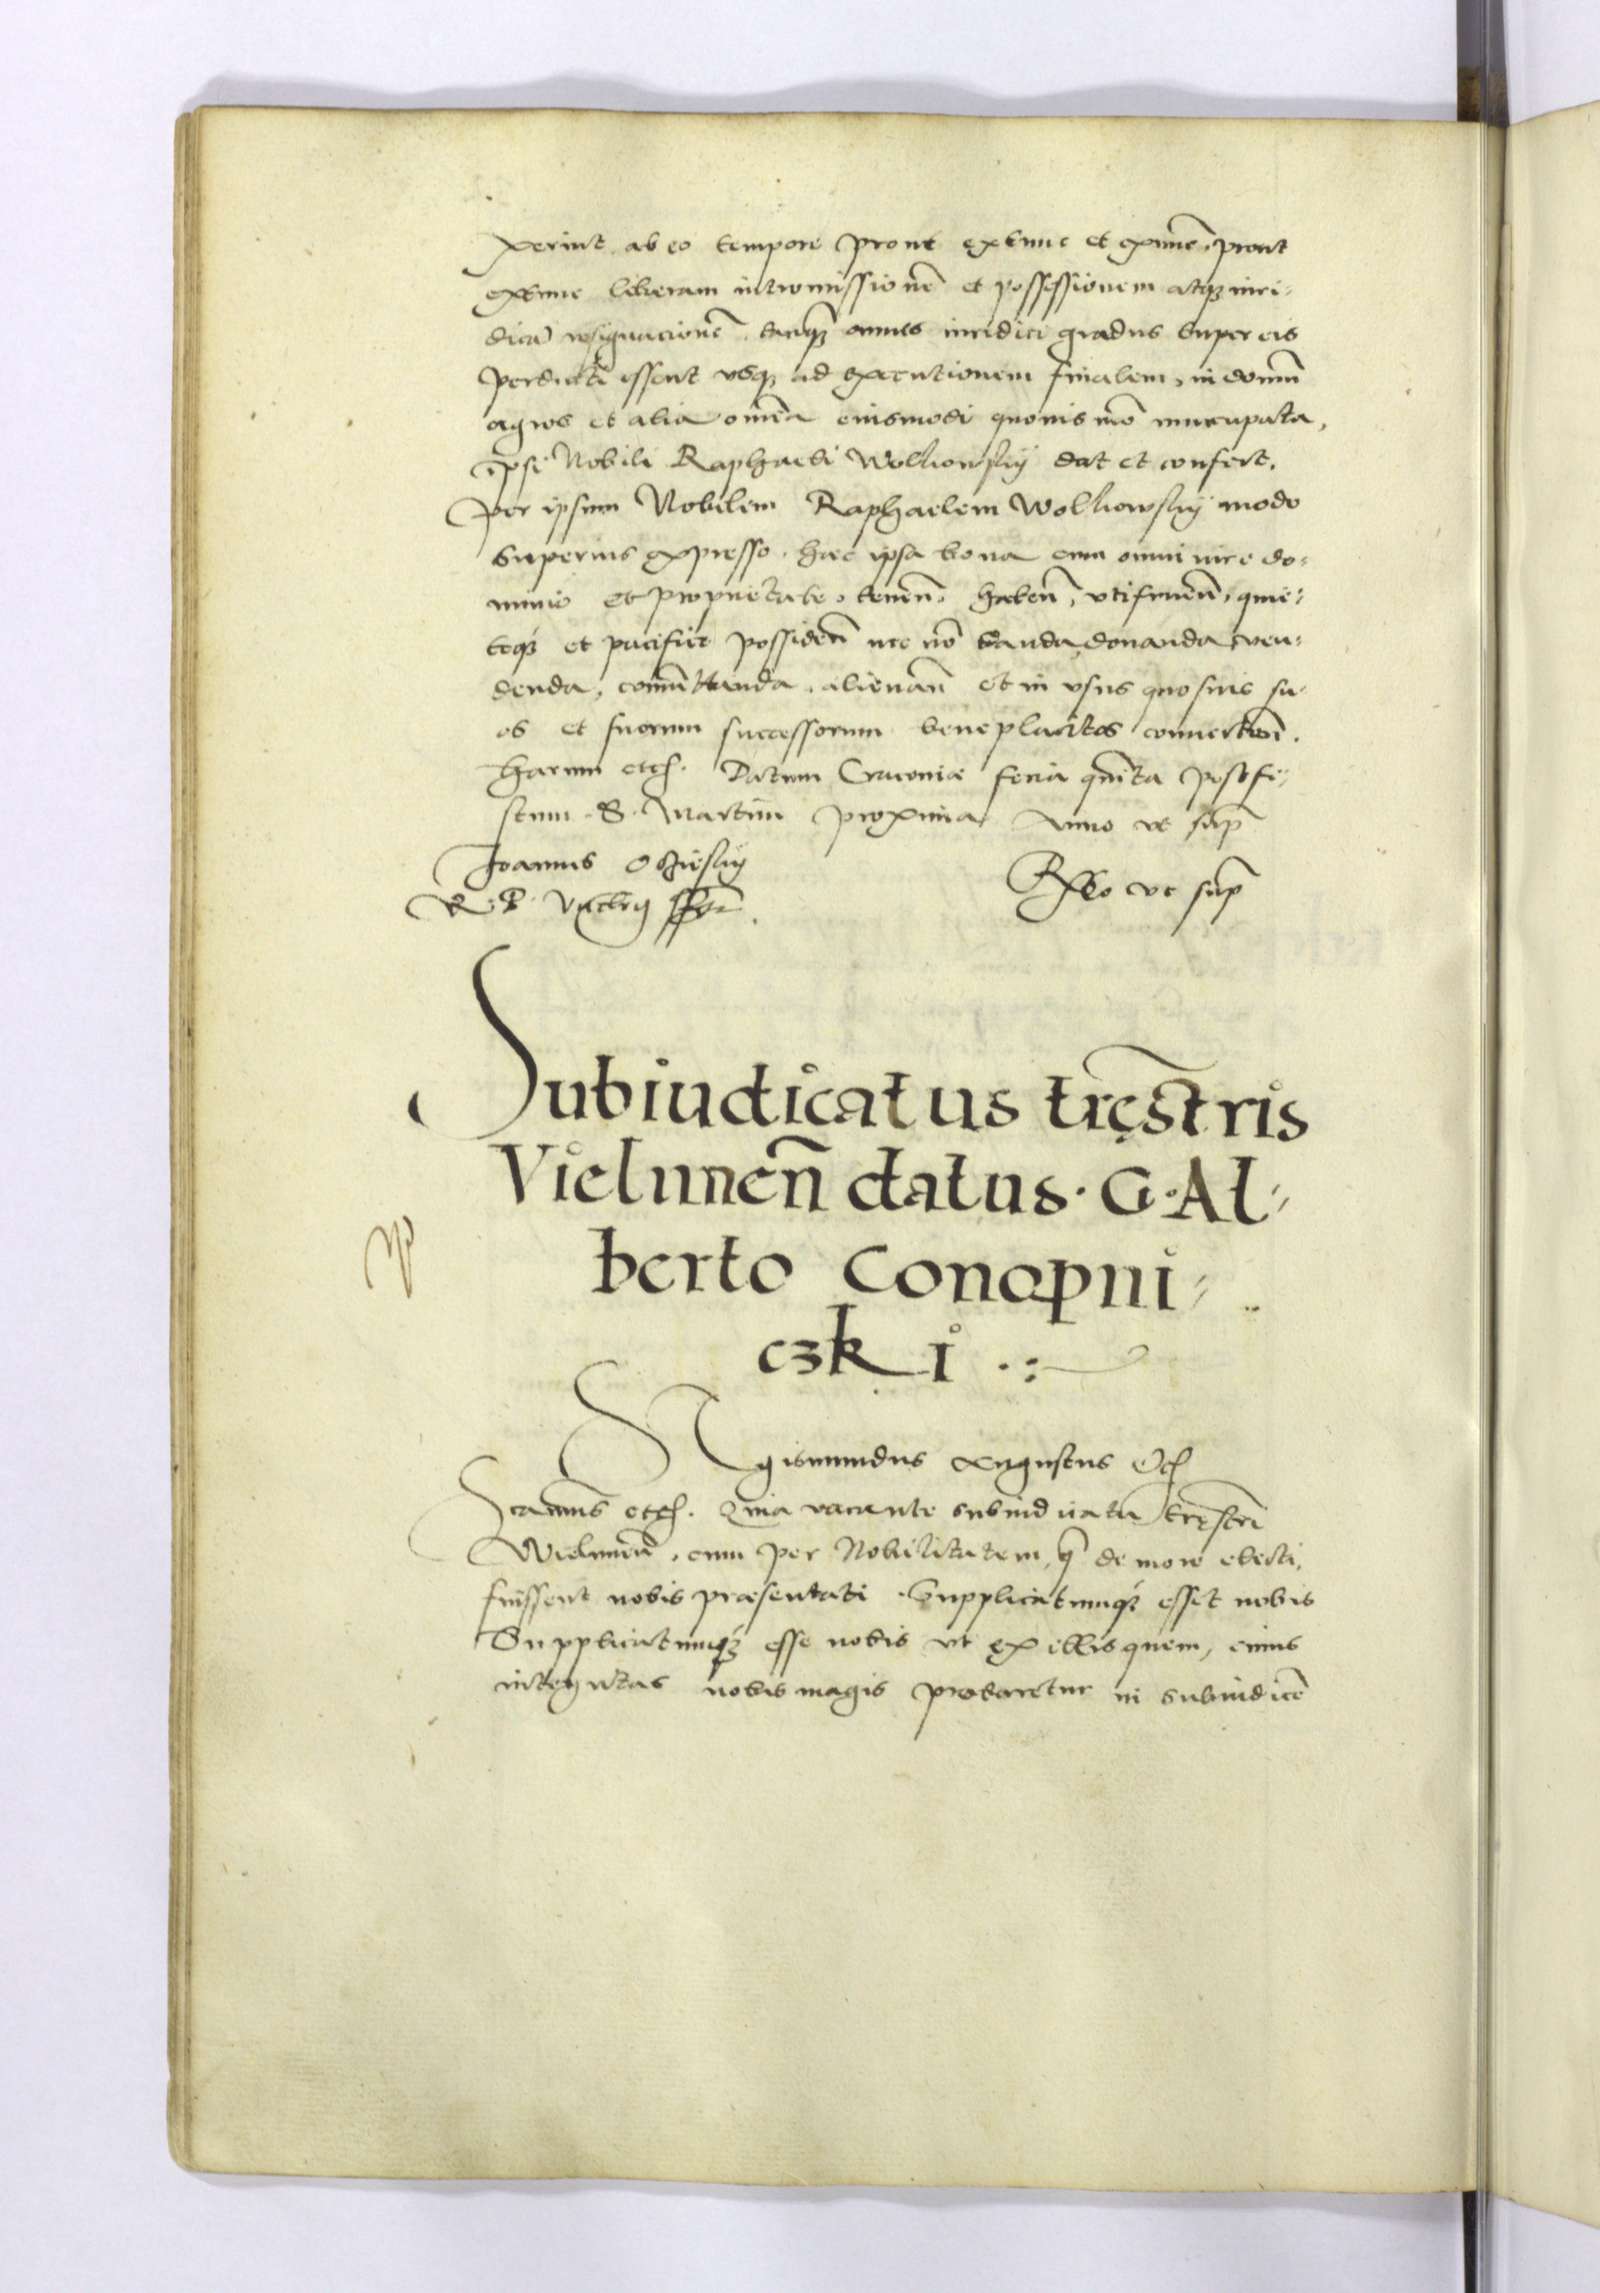 xerint ab eo tempore prout extunc et exnunc, prout
extunc liberam intromissionē et possessionem atqꝫ iuri-
dicā resignacionē, tanqꝫ omnes iuridici gradus super eis
perducti essent vsqꝫ ad executionem finalem, in domū
agros et alia omēa eiusmodi quouis mō nuncupata,
ipsi Nobili Raphaeli Wolliowsky dat et confert.
Per ipsum Nobilem Raphaelem Wolliowsky modo
superius expresso. haec ipsa bona cum omni iure do-
minio et proprietate, tenen̄, haben̄, vtifruen̄, quie-
teqꝫ et pacifice possiden̄ nec nō danda, donanda, ven-
denda, commūttanda, alienan̄ et in vsus quosuis su-
os et suorum successorum beneplacitos conuerten̄.
Harum etc. Datum Cracouiæ feria quīta post fe-
stum S. Martini proxima Anno vt sup̄
Joannes Oczieski
R. P. Vicecan
Rełło vt sup̄
Subiudicatus tręstris
Vielunen̄ datus. G. Al-
berto Conopni-
czki
Sigismundus Augustus etc
Significamus etc. Quia vacante subiudicatu tręstri
Wielunen̄, cum per Nobilitatem, q̄ de more electi,
fuissent nobis præsentati. Supplicatumqꝫ esset nobis
Supplicatumqꝫ esse nobis vt ex illis quem, cuius
integritas nobis magis probaretur in subiudicē